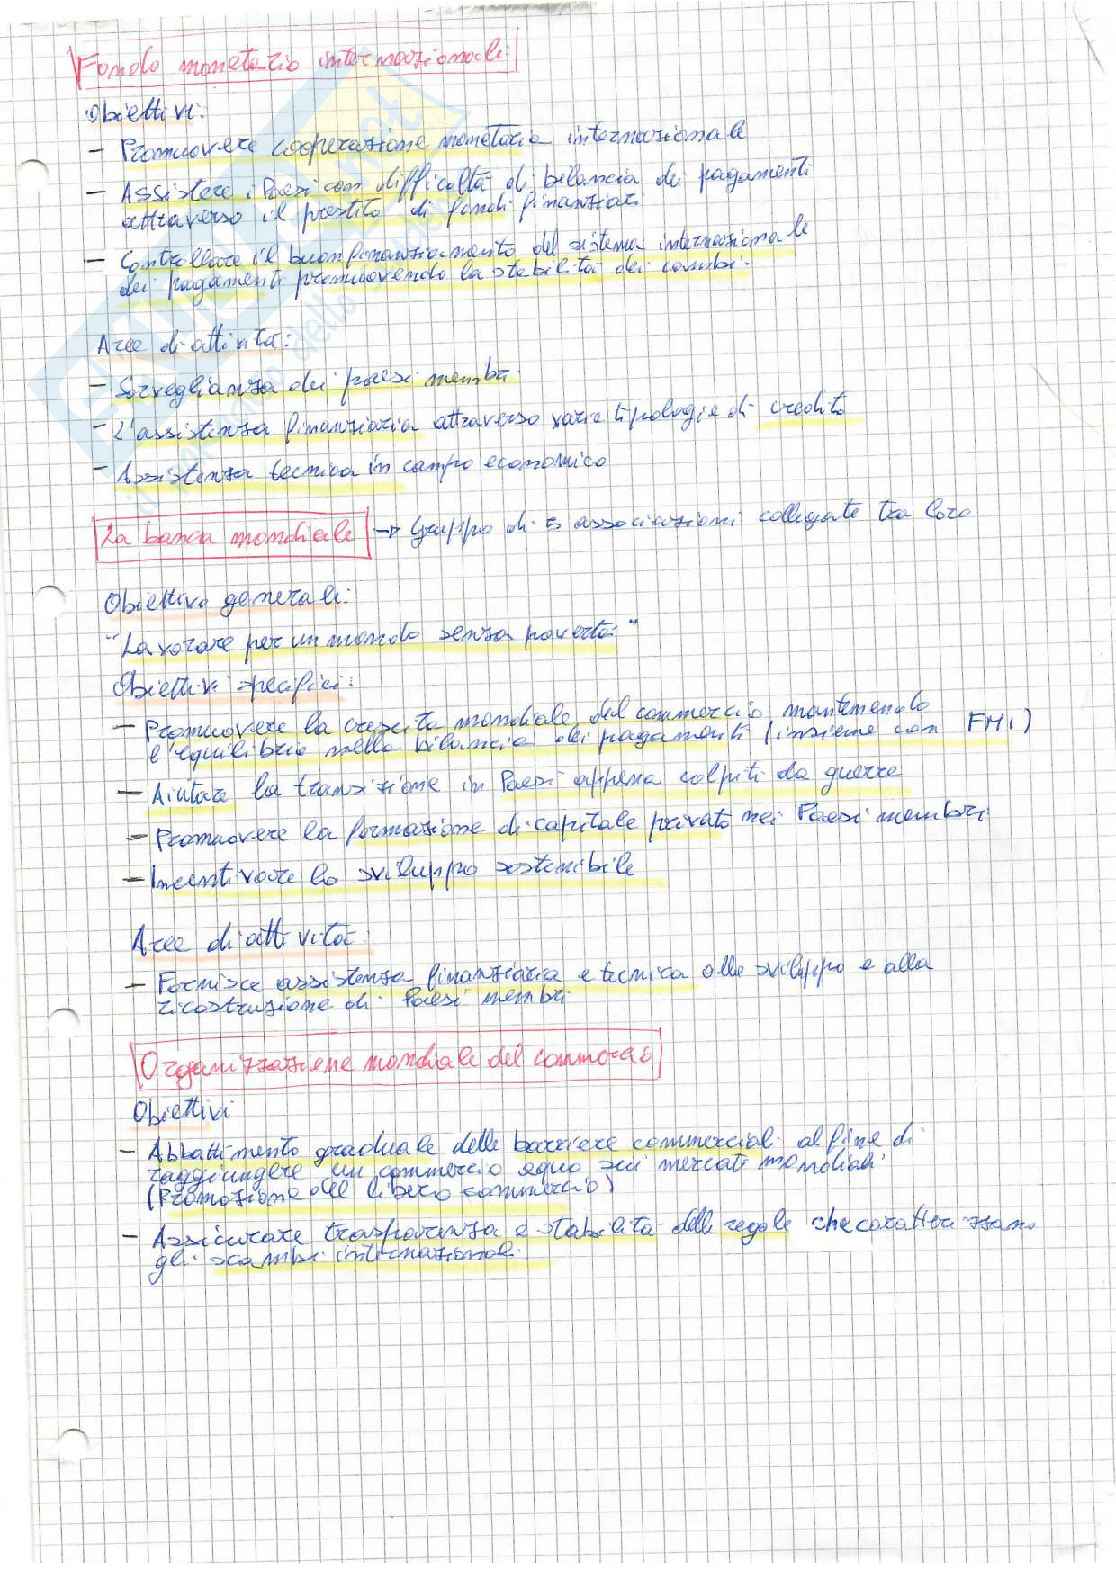 Fondo monetario internazionale:
Obiettivi:
- Promuovere cooperazione monetaria internazionale
- Assistere i Paesi con difficoltà di bilancia dei pagamenti
attraverso il prestito di fondi finanziari
- Controllare il buon finanziamento del sistema internazionale
dei pagamenti promuovendo la stabilità dei cambi.
Aree di attività:
- Sorveglianza dei paesi membri
- L'assistenza finanziaria attraverso varie tipologie di credito
- Assistenza tecnica in campo economico
La banca mondiale → Gruppo di 5 associazioni collegate tra loro
Obiettivi generali:
"Lavorare per un mondo senza povertà"
Obiettivi specifici:
- Promuovere la crescita mondiale del commercio mantenendo
l'equilibrio nella bilancia dei pagamenti (insieme con FMI)
- Aiutare la transizione in Paesi appena colpiti da guerre
- Promuovere la formazione di capitale privato nei Paesi membri
- Incentivare lo sviluppo sostenibile
Aree di attività:
- Fornisce assistenza finanziaria e tecnica allo sviluppo e alla
ricostruzione di Paesi membri
Organizzazione mondiale del commercio
Obiettivi
- Abbattimento graduale delle barriere commerciali al fine di
raggiungere un commercio equo sui mercati mondiali
(Promozione del libero commercio)
- Assicurare trasparenza e stabilità delle regole che caratterizzano
gli scambi internazionali.